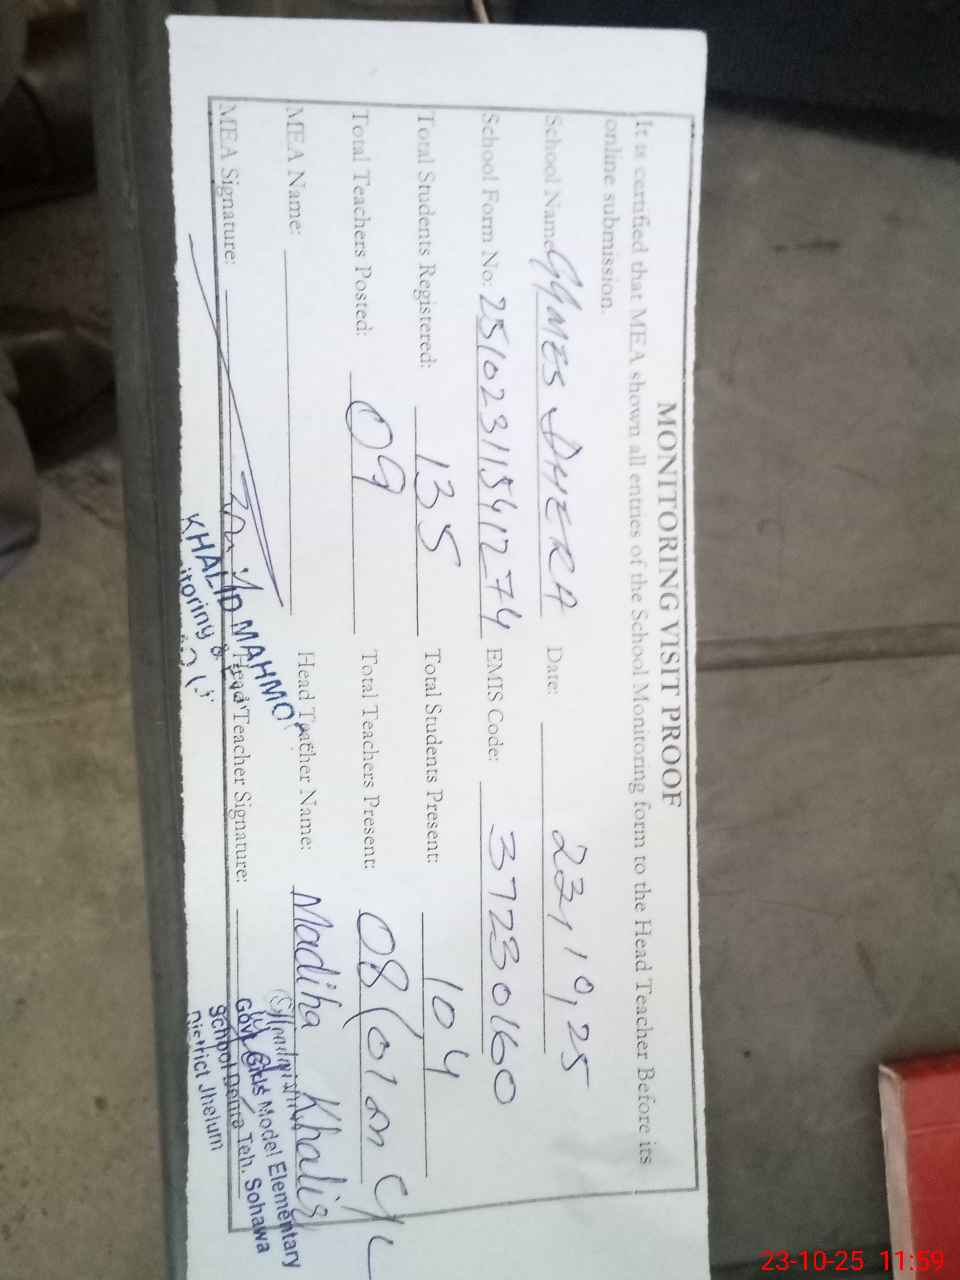 MONITORING VISIT PROOF
It is certified that MEA shown all entries of the School Monitoring form to the Head Teacher Before its
online submission.
School Name GGMES DHERA Date: 23,10,25
School Form No: 25102311541274 EMIS Code: 37230160
Total Students Registered: 135 Total Students Present: 104
Total Teachers Posted: 09 Total Teachers Present: 08 (01 on CL
MEA Name: Head Teacher Name: Madiha Khaliq
MEA Signature: Head Teacher Signature:
KHALID MAHMO
itoring &
Govt. Girls Model Elementary
School Dehra Teh. Sohawa
District Jhelum
23-10-25 11:59